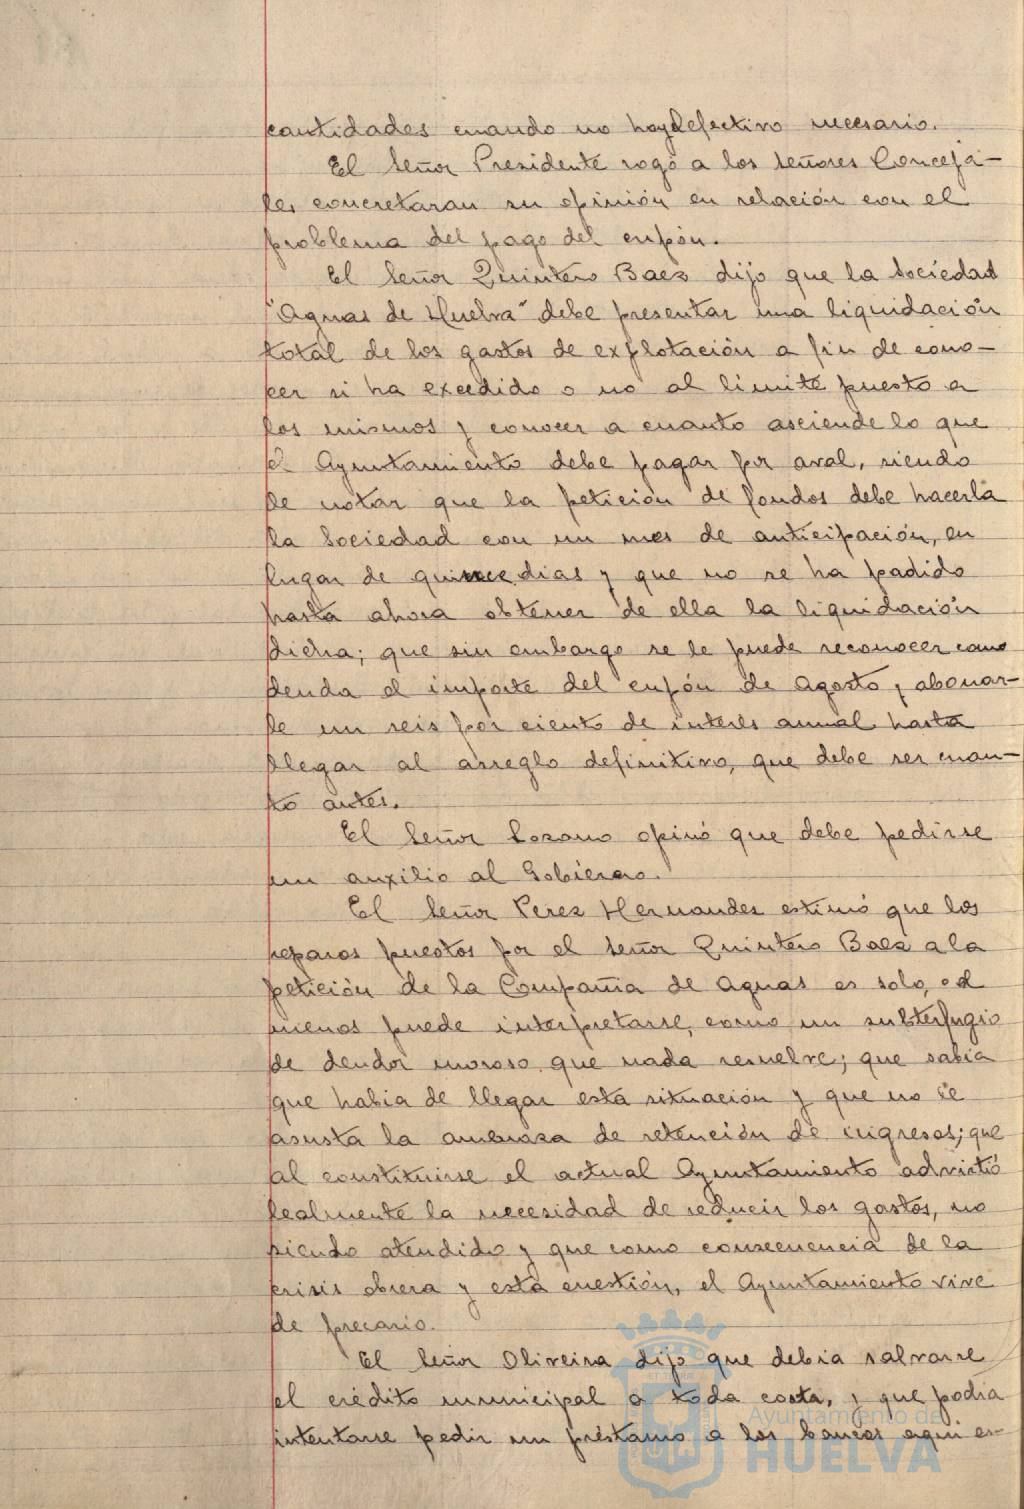 cantidades cuando no hay defectivo necesario.
El Señor Presidente rogó a los señores Conceja-
les concretaran su opinión en relación con el
problema del pago del cupón.
El Señor Quintero Baez dijo que la Sociedad
"Aguas de Huelva" debe presentar una liquidación
total de los gastos de explotación a fin de cono-
cer si ha excedido o no al limite puesto a
los mismos y conocer a cuanto asciende lo que
el Ayuntamiento debe pagar por aval, siendo
de notar que la petición de fondos debe hacerla
la Sociedad con un mes de anticipación, en
lugar de quince dias y que no se ha podido
hasta ahora obtener de ella la liquidación
dicha; que sin embargo se le puede reconocer como
deuda el importe del cupón de Agosto, abonar-
le un seis por ciento de interés anual hasta
llegar al arreglo definitivo, que debe ser cuan-
to antes.
El Señor Lozano opinó que debe pedirse
un auxilio al Gobierno.
El Señor Perez Hernandez estimó que los
reparos puestos por el señor Quintero Baez a la
petición de la Compañia de Aguas es solo, o al
menos puede interpretarse, como un subterfugio
de deudor moroso que nada resuelve; que sabia
que habia de llegar esta situación y que no le
asusta la amenaza de retención de ingresos; que
al constituirse el actual Ayuntamiento advirtió
lealmente la necesidad de reducir los gastos, no
siendo atendido y que como consecuencia de la
crisis obrera y esta cuestión, el Ayuntamiento vive
de precario.
El Señor Oliveira dijo que debia salvarse
el crédito municipal a toda costa, y que podia
intentarse pedir un préstamo a los bancos aqui es-
Ayuntamiento de
HUELVA